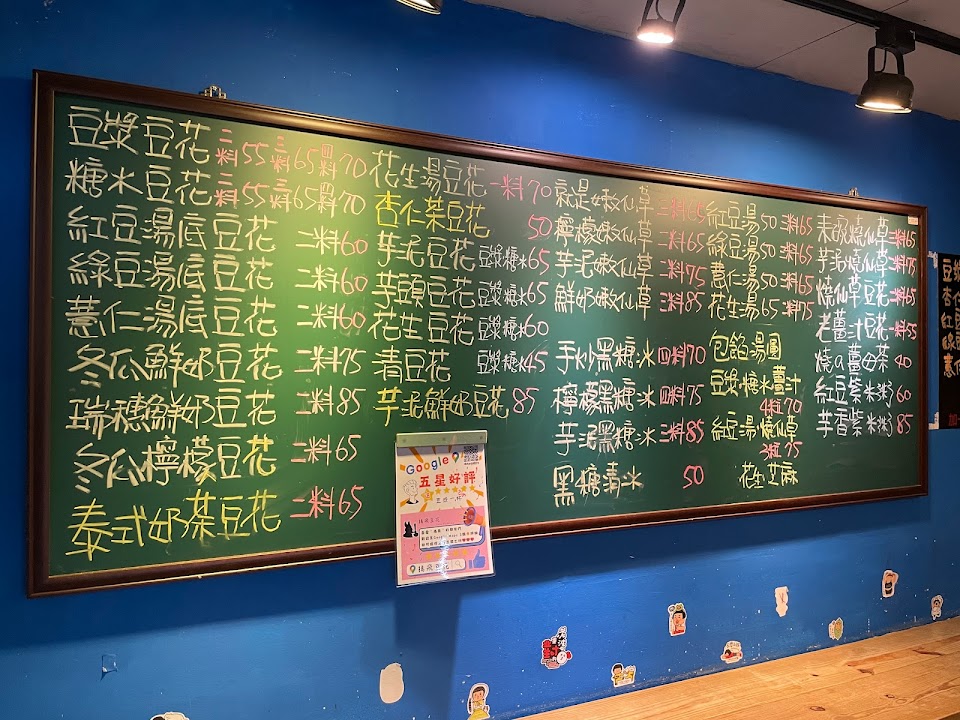 豆漿豆花 二料55 三料65 四料70
糖水豆花 二料55 三料65 四料70
紅豆湯底豆花 二料60
綠豆湯底豆花 二料60
薏仁湯底豆花 二料60
冬瓜鮮奶豆花 二料75
瑞穗鮮奶豆花 二料85
冬瓜檸檬豆花 二料65
泰式奶茶豆花 二料65
花生湯豆花 一料70
杏仁茶豆花 50
芋泥豆花 豆漿糖水65
芋頭豆花 豆漿糖水65
花生豆花 豆漿糖水60
清豆花 豆漿糖水45
芋泥鮮奶豆花85
就是嫩仙草 三料65
檸檬嫩仙草 二料65
芋泥嫩仙草 二料75
鮮奶嫩仙草 三料85
手炒黑糖冰 四料70
檸檬黑糖冰 四料75
芋泥黑糖冰 三料85
黑糖清冰 50
紅豆湯50 三料65
綠豆湯50 三料65
薏仁湯50 三料65
花生湯65 三料75
包餡湯圓
豆漿・糖水・薑汁
4粒70
紅豆湯・燒仙草
3粒75
花生 芝麻
燒仙草 三料65
芋泥燒仙草 二料75
燒仙草豆花 二料65
老薑汁豆花 一料55
燒の薑母茶 40
紅豆紫米粥 60
芋香紫米粥 85
Google
五星好評